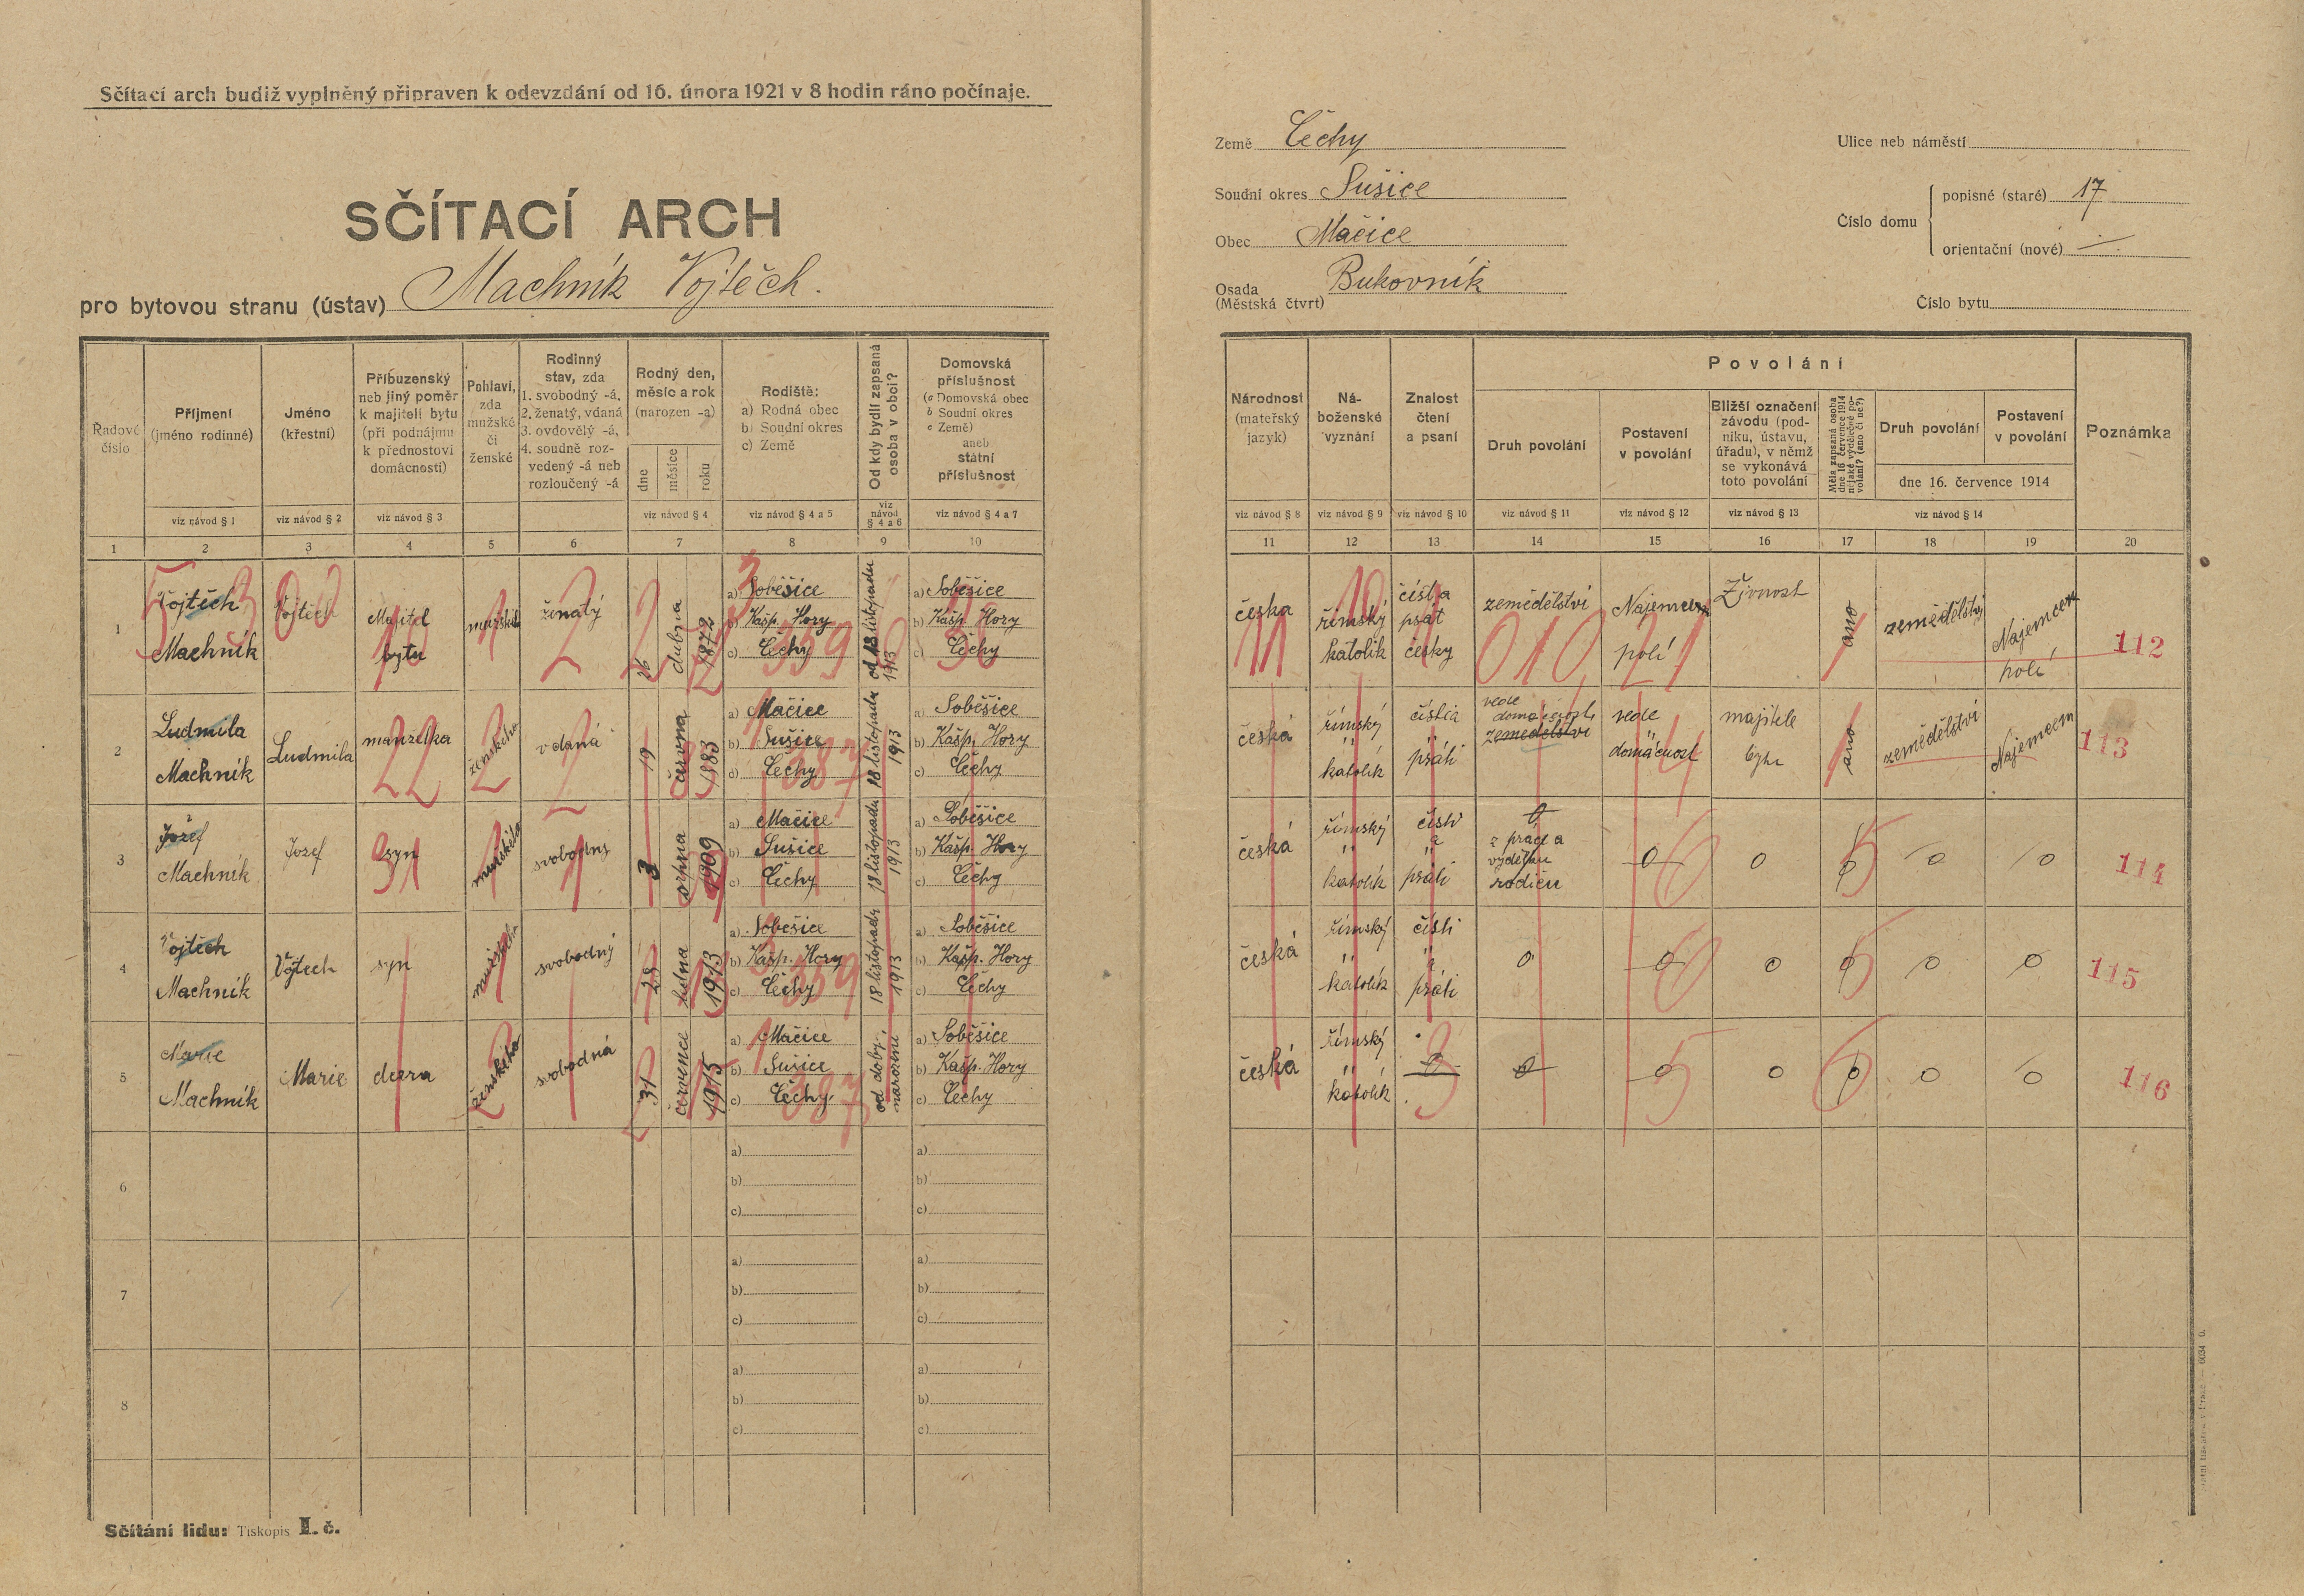 Sčítací arch budiž vyplněný připraven k odevzdání od 16. února 1921 v 8 hodin ráno počínaje.
SČÍTACÍ ARCH
pro bytovou stranu (ústav) Machník Vojtěch.
Země Čechy
Soudní okres Sušice
Obec Mačice
Osada Bukovník
(Městská čtvrt)
Ulice neb náměstí
Číslo domu
popisné (staré) 17
orientační (nové)
Číslo bytu
Řadové číslo
Příjmení
(jméno rodinné)
viz návod § 1
Jméno
(křestní)
viz návod § 2
Příbuzenský
neb jiný poměr
k majiteli bytu
(při podnájmu
k přednostovi
domácnosti)
viz návod § 3
Pohlaví,
zda
mužské
či
ženské
Rodinný
stav, zda
1. svobodný -á,
2. ženatý, vdaná
3. ovdovělý -á,
4. soudně roz-
vedený -á neb
rozloučený -á
Rodný den,
měsíc a rok
(narozen -a)
dne
měsíce
roku
viz návod § 4
Rodiště:
a) Rodná obec
b) Soudní okres
c) Země
viz návod § 4 a 5
Od kdy bydlí zapsaná
osoba v obci?
viz
návod
§ 4 a 6
Domovská
příslušnost
(a Domovská obec
b Soudní okres
c Země)
aneb
státní
příslušnost
viz návod § 4 a 7
1 2 3 4 5 6 7 8 9 10
Národnost
(mateřský
jazyk)
viz návod § 8
Ná-
boženské
vyznání
viz návod § 9
Znalost
čtení
a psaní
viz návod § 10
Povolání
Druh povolání
viz návod § 11
Postavení
v povolání
viz návod § 12
Bližší označení
závodu (pod-
niku, ústavu,
úřadu), v němž
se vykonává
toto povolání
viz návod § 13
Měla zapsaná osoba
dne 16 července 1914
nějaké výdělečné po-
volání? (ano či ne?)
Druh povolání
Postavení
v povolání
dne 16. července 1914
viz návod § 14
Poznámka
11 12 13 14 15 16 17 18 19 20
1
Vojtěch
Machník
Vojtěch
Majitel
bytu
mužské
ženatý
26
dubna
1872
a) Soběšice
b) Kašp. Hory
c) Čechy
359
od 18 listopadu
1913
a) Soběšice
b) Kašp. Hory
c) Čechy
česka
římský
katolik
číst a
psát
česky
zemědělství
010
Najemce
polí
21
Živnost
ano
zemědělství
Najemce
polí
112
2
Ludmila
Machník
Ludmila
manželka
22
ženského
vdaná
19
června
1883
a) Mačice
b) Sušice
c) Čechy
387
18 listopadu
1913
a) Soběšice
b) Kašp. Hory
c) Čechy
česká
římský
"
katolík
čísti a
"
psáti
vede
domácnost
zemědělství
vede
"
domácnost
majitele
bytu
ano
zemědělství
Najemcem
113
3
Jozef
Machník
Jozef
syn
31
mužského
svobodný
3
srpna
1909
a) Mačice
b) Sušice
c) Čechy
18 listopadu
1913
a) Soběšice
b) Kašp. Hory
c) Čechy
česká
římský
"
katolík
čísti
a
"
psáti
0
z práce a
výdělku
rodičů
0
0
0
0
0
114
4
Vojtěch
Machník
Vojtech
syn
mužského
svobodný
1913
a) Soběšice
b) Kašp. Hory
c) Čechy
359
18 listopadu
1913
a) Soběšice
b) Kašp. Hory
c) Čechy
česká
římský
"
katolík
čísti
a
psáti
0
0
0
0
0
0
115
5
Marie
Machník
Marie
dcera
ženského
svobodná
31
července
1915
a) Mačice
b) Sušice
c) Čechy
387
od doby
narození
a) Soběšice
b) Kašp. Hory
c) Čechy
česká
římský
"
katolík
0
0
0
0
0
0
0
116
6
a)
b)
c)
a)
b)
c)
7
a)
b)
c)
a)
b)
c)
8
a)
b)
c)
a)
b)
c)
Sčítání lidu: Tiskopis I. č.